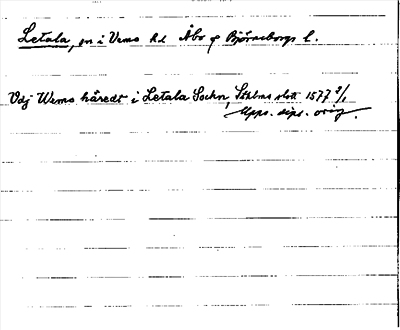 Letala, sn i Vemo hd Åbo o Björneborgs l.
Vdj Wemo häredt i Letala Sochn, Sthlms slott 1577 2/1
Upps. dipl. orig.